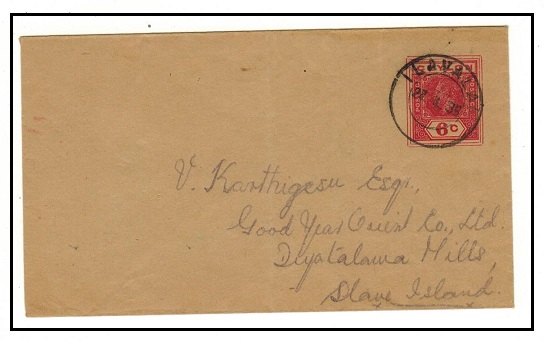 ILAVALAI
6c
V. Karthigesu Esqr.,
Good Year Orient Co., Ltd.
Diyatalawa Mills,
Slave Island.